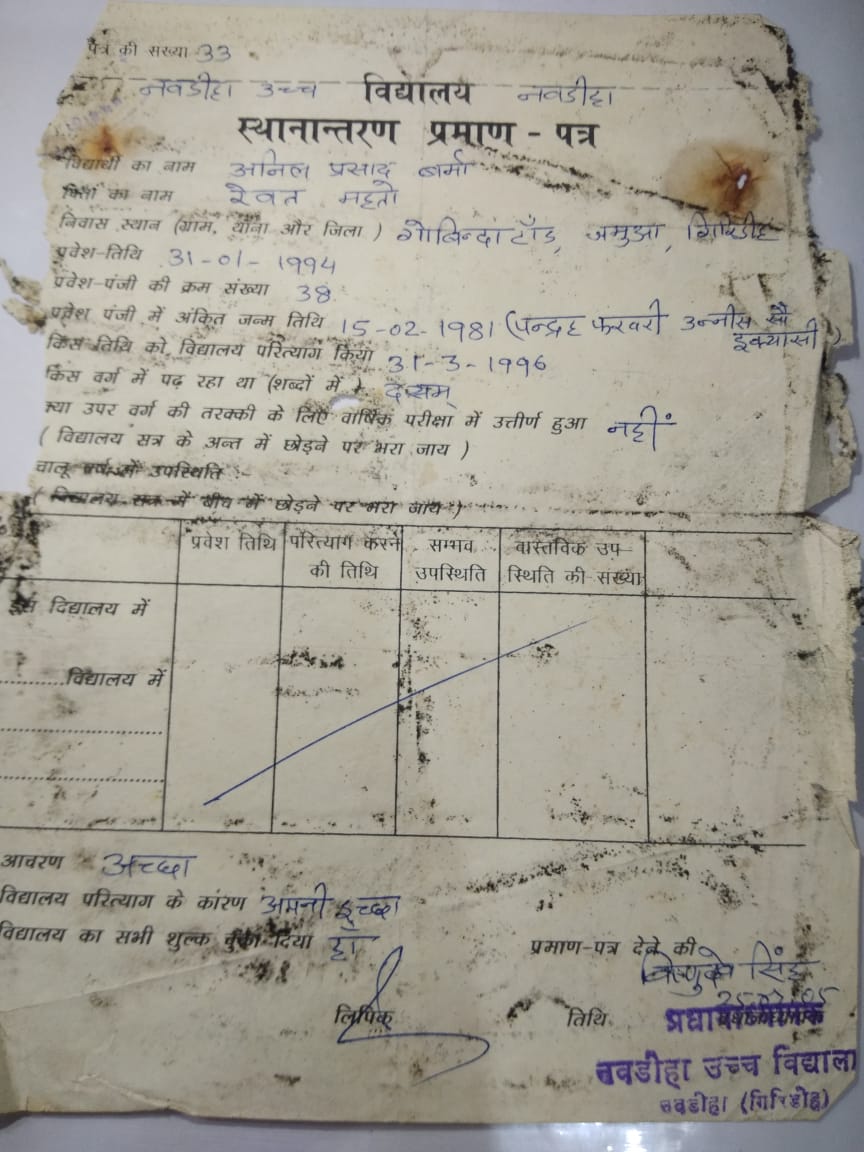 पत्र की संख्या 33
नवडीहा उच्च विद्यालय नवडीहा
स्थानान्तरण प्रमाण - पत्र
विद्यार्थी का नाम अनिल प्रसाद बर्मा
पिता का नाम रेवत महतो
निवास स्थान (ग्राम, थाना और जिला) गोबिन्दाटाँड, जमुआ, गिरिडीह
प्रवेश-तिथि 31-01-1994
प्रवेश-पंजी की क्रम संख्या 38
प्रवेश पंजी में अंकित जन्म तिथि 15-02-1981 (पन्द्रह फरवरी उन्नीस सौ
इक्यासी)
किस तिथि को विद्यालय परित्याग किया 31-3-1996
किस वर्ग में पढ़ रहा था (शब्दों में) दशम्
क्या उपर वर्ग की तरक्की के लिए वार्षिक परीक्षा में उत्तीर्ण हुआ नहीं
( विद्यालय सत्र के अन्त में छोड़ने पर भरा जाय )
चालू वर्ष में उपस्थिति :-
( विद्यालय सत्र में बीच में छोड़ने पर भरा जाय )
प्रवेश तिथि परित्याग करने की तिथि सम्भव उपस्थिति वास्तविक उप-स्थिति की संख्या
इस विद्यालय में
..........विद्यालय में
आचरण अच्छा
विद्यालय परित्याग के कारण अपनी इच्छा
विद्यालय का सभी शुल्क चुका दिया हाँ
प्रमाण-पत्र देने की
सिंह
लिपिक
तिथि
प्रधानाध्यापक
नवडीहा उच्च विद्यालय
नवडीहा (गिरिडीह)